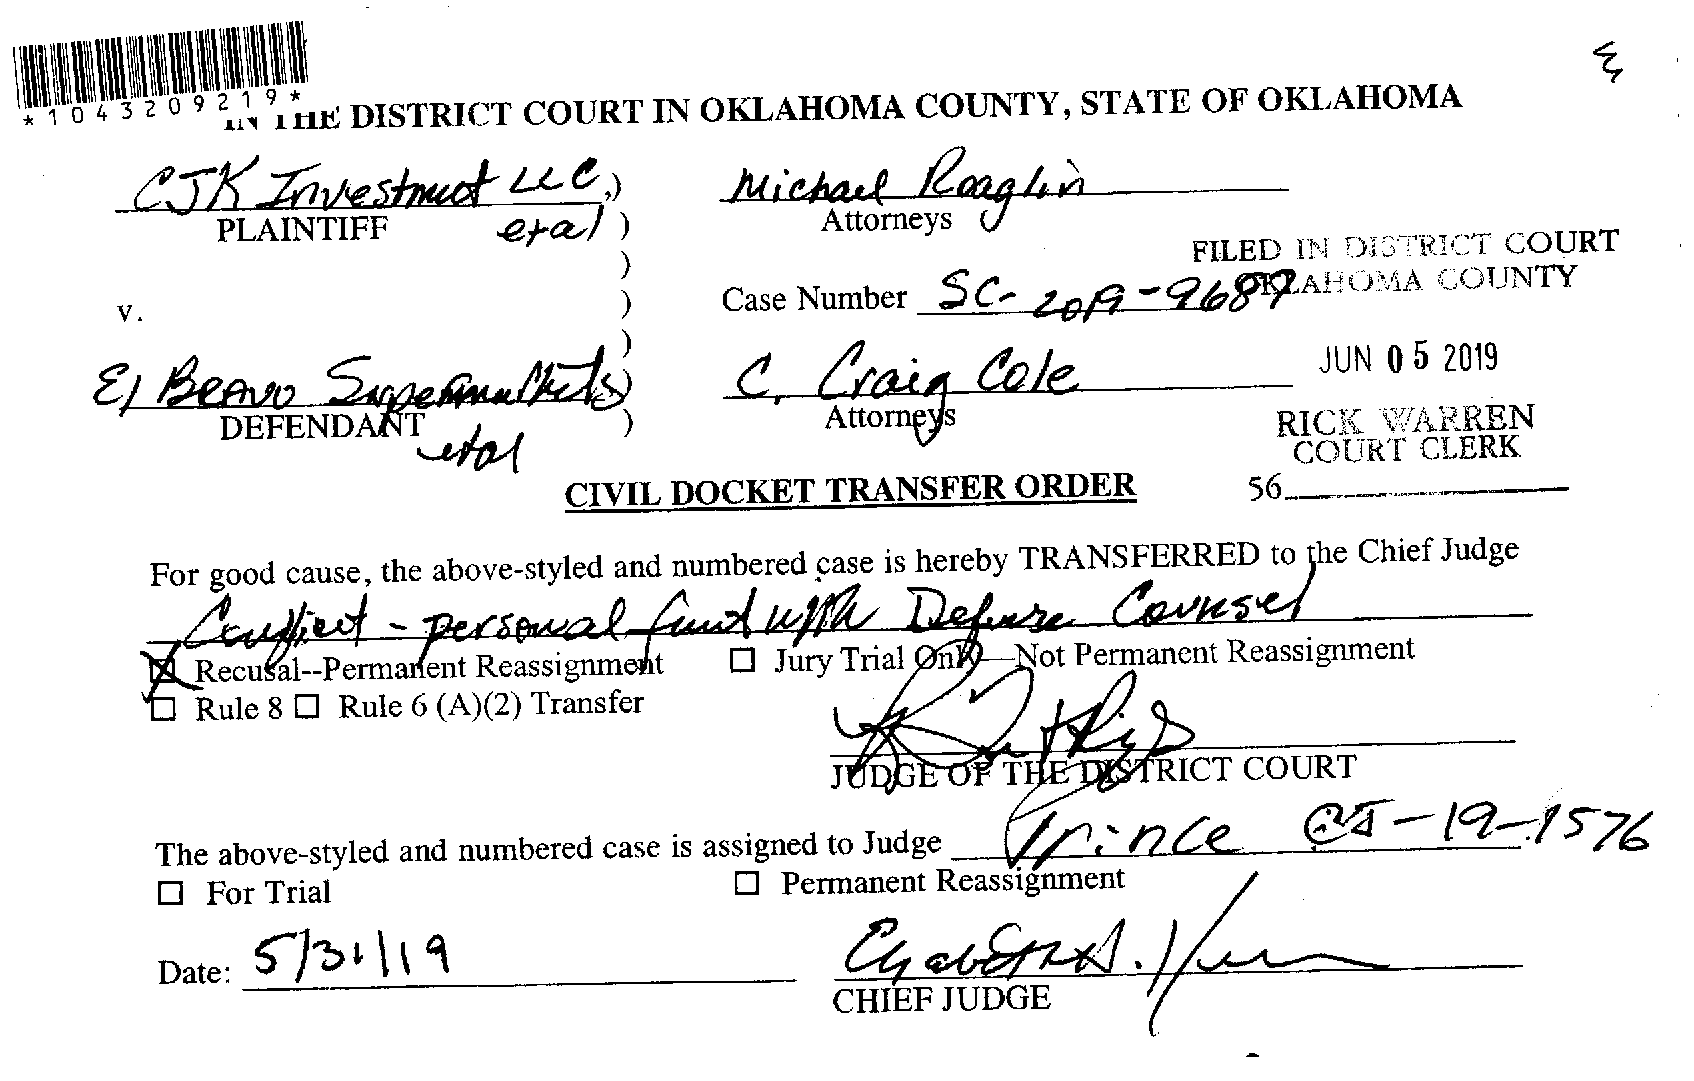 *1043209219*
IN THE DISTRICT COURT IN OKLAHOMA COUNTY, STATE OF OKLAHOMA
CJK Investmut LLC,) Michael Roaglin
PLAINTIFF et al ) Attorneys
FILED IN DISTRICT COURT
OKLAHOMA COUNTY
)
v. ) Case Number SC-2019-9689
)
El Bravo Supermarkets) C. Craig Cole
DEFENDANT ) Attorneys
et al
JUN 05 2019
RICK WARREN
COURT CLERK
56
CIVIL DOCKET TRANSFER ORDER
For good cause, the above-styled and numbered case is hereby TRANSFERRED to the Chief Judge
Conflict - personal with Defense Counsel
☒ Recusal--Permanent Reassignment ☐ Jury Trial Only—Not Permanent Reassignment
☐ Rule 8 ☐ Rule 6 (A)(2) Transfer
JUDGE OF THE DISTRICT COURT
The above-styled and numbered case is assigned to Judge Prince CJ-19-1576
☐ For Trial ☐ Permanent Reassignment
Date: 5/31/19
CHIEF JUDGE